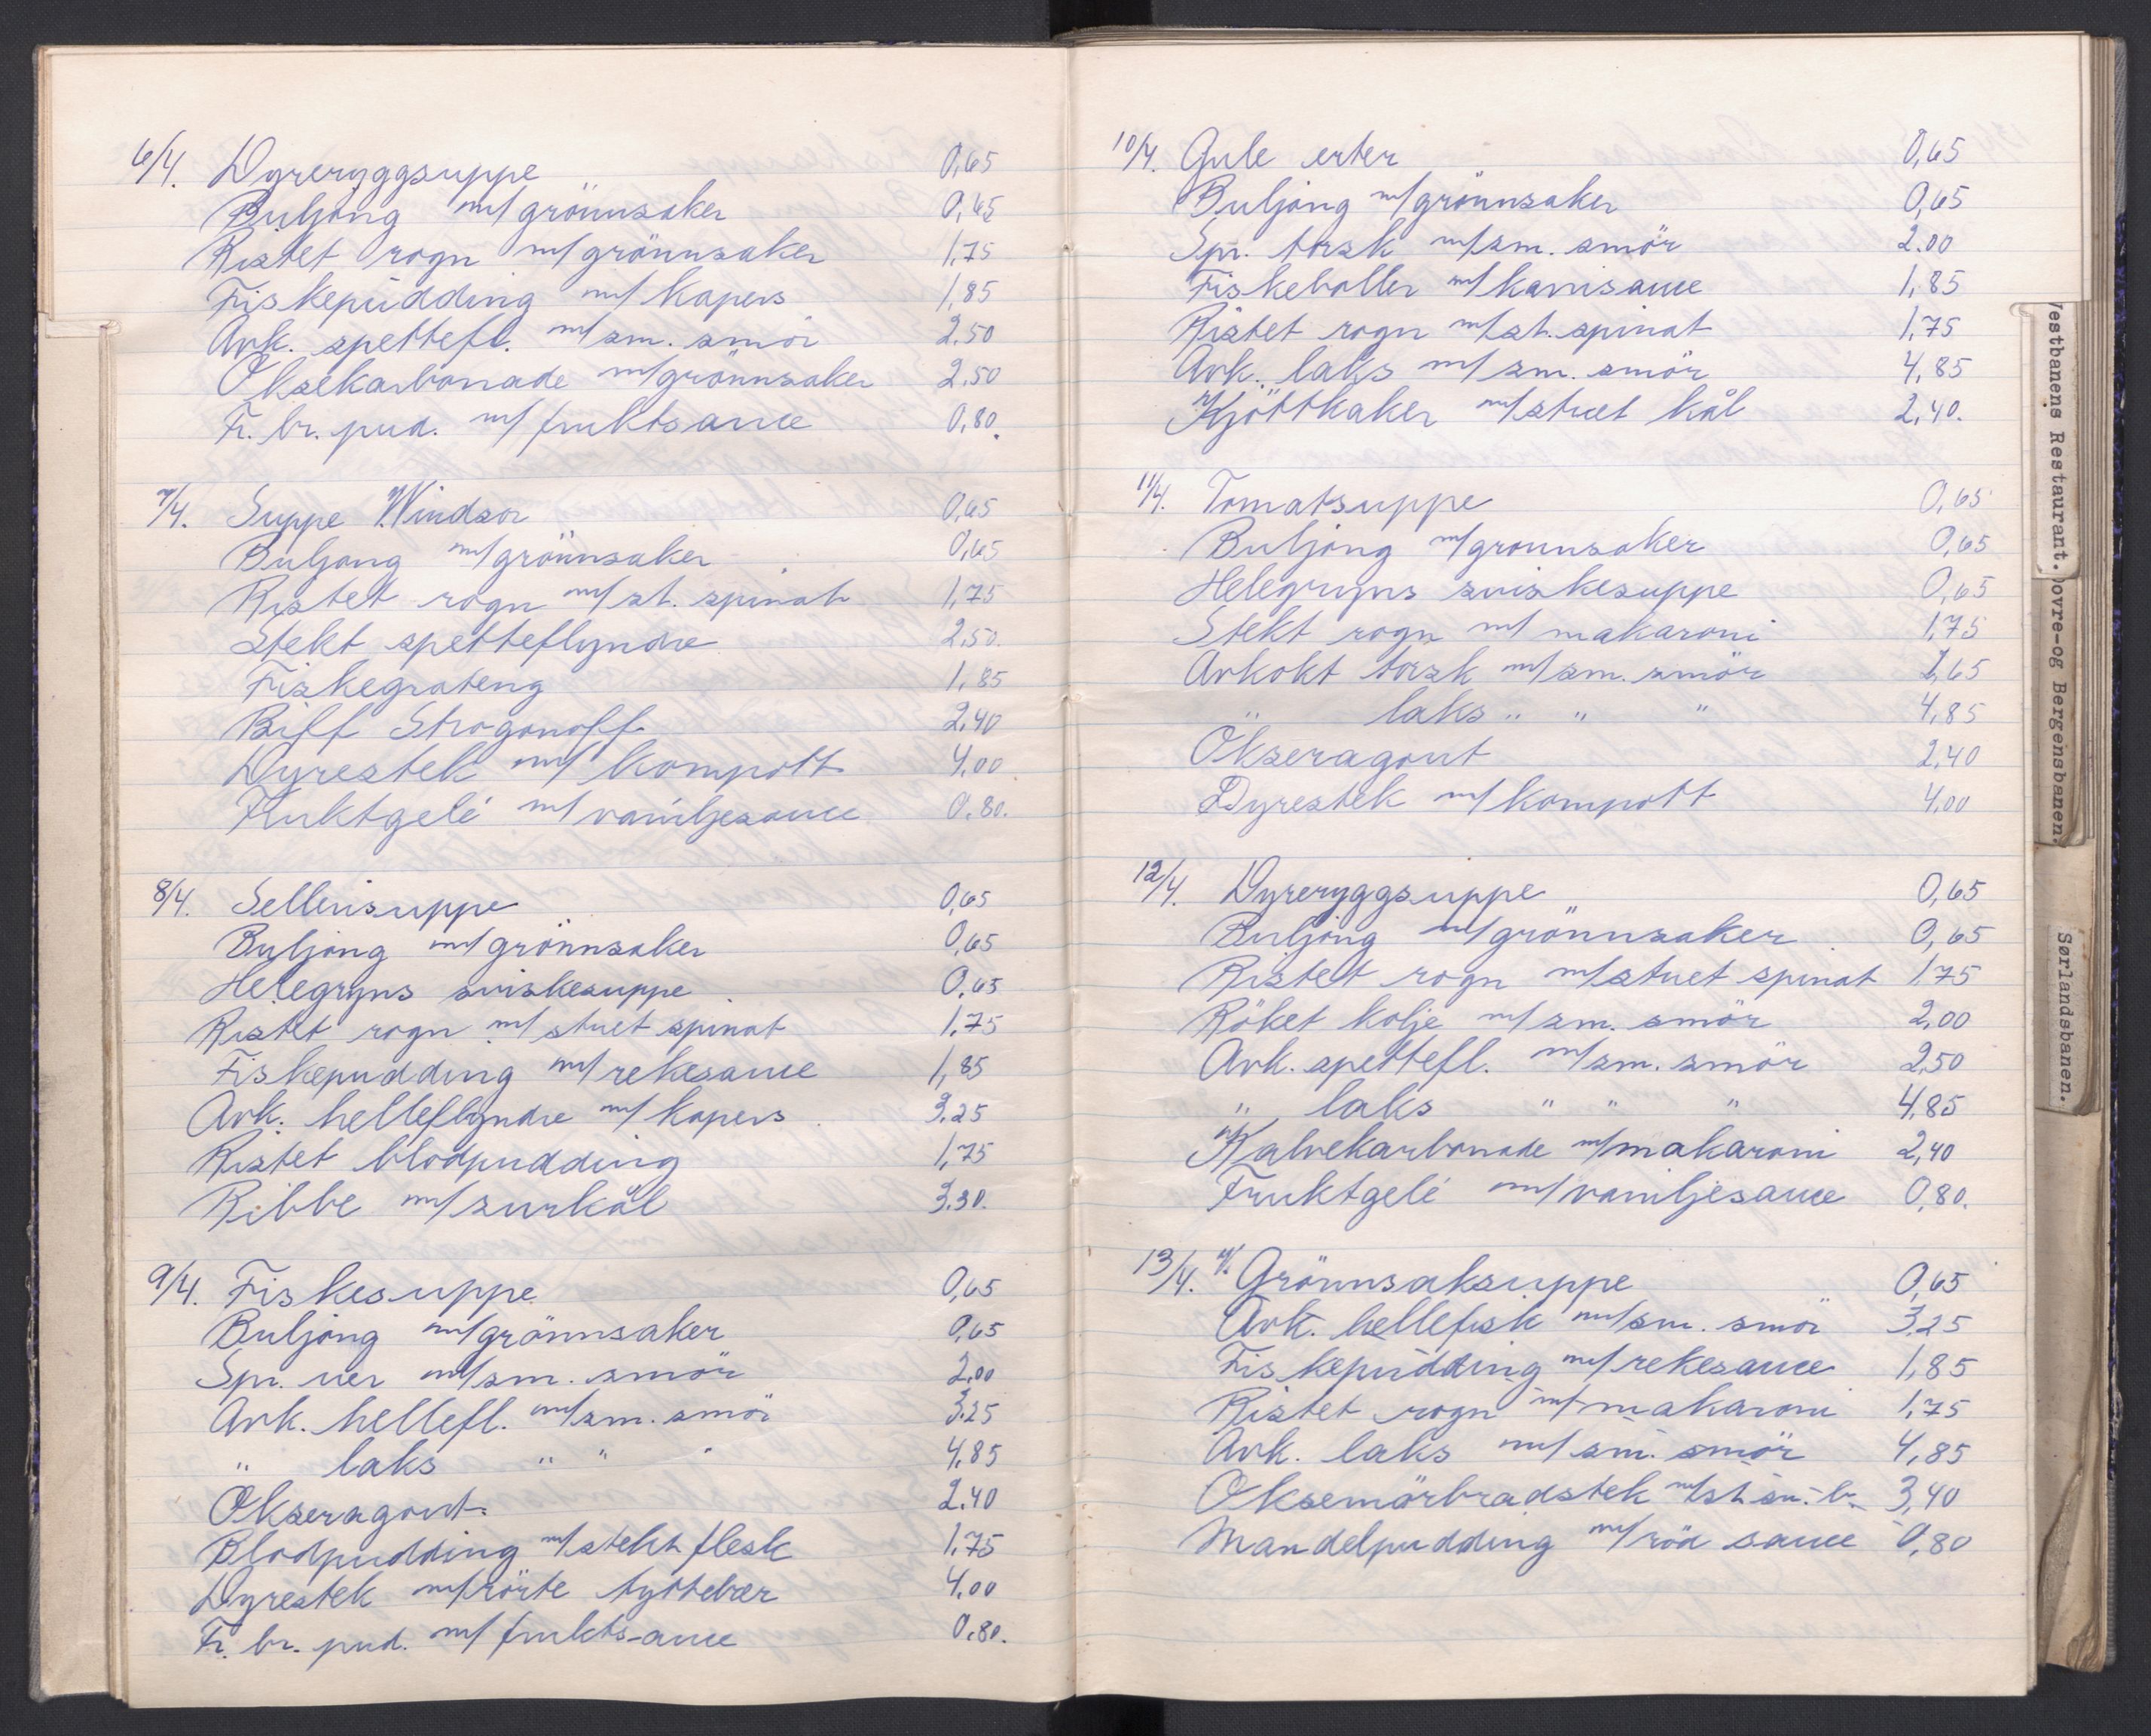 6/4. Dyreryggsuppe 0,65
Buljong m/grönnsaker 0,65
Ristet rogn m/grönnsaker 1,75
Fiskepudding m/ kapers 1,85
Avk. spettefl. m/sm. smör 2,50
Oksekarbonade m/grönnsaker 2,50
Fr. br. pud. m/ fruktsauce 0,80.
7/4. Suppe Windsor 0,65
Buljong m/grönnsaker 0,65
Ristet rogn m/st. spinat 1,75
Stekt spetteflyndre 2,50.
Fiskegrateng 1,85
Biff Strogonoff 2,40
Dyrestek m/ kompott 4,00
Fruktgelé m/vaniljesauce 0.80.
8/4. Sellerisuppe 0,65
Buljong m/grönnsaker 0,65
Helegryns sviskesuppe 0,65
Ristet rogn m/ stuet spinat 1,75
Fiskepudding m/rekesauce 1,85
Avk. helleflyndre m/ kapers 3.25
Ristet blodpudding 1,75
Ribbe m/surkål 3.30.
9/4. Fiskesuppe 0,65
Buljong m/grönnsaker 0,65
Spr. uer m/sm. smör 2.00
Avk. hellefl. m/sm. smör 3.25
" laks " " " 4,85
Okseragout 2.40
Blodpudding m/stekt flesk 1,75
Dyrestek m/rörte tyttebær 4.00
Fr. br. pud. m/ fruktsauce 0.80.
10/4. Gule erter 0,65
Buljong m/grönnsaker 0,65
Spr. torsk m/sm. smör 2.00
Fiskeboller m/karrisauce 1,85
Ristet rogn m/st. spinat 1,75
Avk. laks m/sm. smör 4,85
Kjöttkaker m/stuet kål 2,40.
11/4. Tomatsuppe 0,65
Buljong m/grönnsaker 0,65
Helegryns sviskesuppe 0,65
Stekt rogn m/ makaroni 1,75
Avkokt torsk m/sm. smör 2,65
" laks " " " 4,85
Okseragout 2,40
Dyrestek m/kompott 4,00
12/4. Dyreryggsuppe 0,65
Buljong m/grönnsaker 0,65
Ristet rogn m/stuet spinat 1,75
Röket kolje m/sm. smör 2,00
Avk. spettefl. m/sm. smör 2,50
" laks " " " 4,85
Kalvekarbonade m/makaroni 2,40
Fruktgelé m/vaniljesauce 0,80.
13/4. Grönnsaksuppe 0,65
Avk. hellefisk m/sm. smör 3,25
Fiskepudding m/rekesauce 1,85
Ristet rogn m/makaroni 1,75
Avk. laks m/sm. smör 4,85
Oksemörbradstek m/st. sn. br. 3,40
Mandelpudding m/röd sauce 0,80
Vestbanens Restaurant.
Dovre-og Bergensbanen.
Sørlandsbanen.